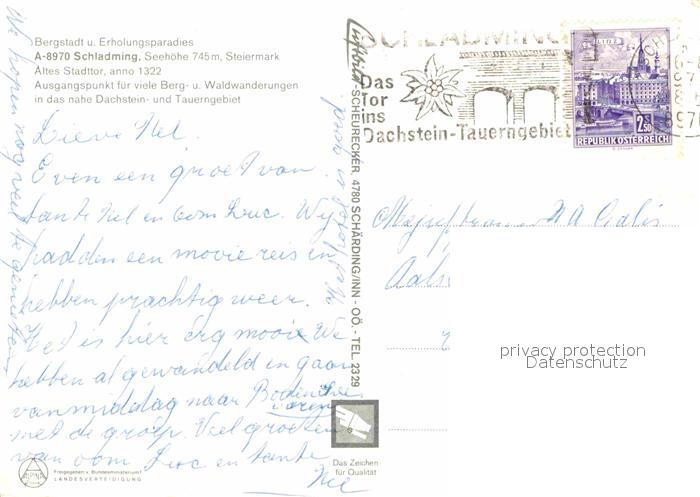 Bergstadt u. Erholungsparadies
A-8970 Schladming, Seehöhe 745 m, Steiermark
Altes Stadttor, anno 1322
Ausgangspunkt für viele Berg- u. Waldwanderungen
in das nahe Dachstein- und Tauerngebiet
Lieve Nel.
Even een groet van
tante Nel en oom Luc. Wij
hadden een mooie reis en
hebben prachtig weer.
Het is hier erg mooi. We
hebben al gewandeld en gaan
vanmiddag naar
met de groep. Veel groeten
van oom Luc en tante
Nel
We hopen nog veel te genieten
Luftbild-SCHEURECKER, 4780 SCHÄRDING/INN - OÖ. - TEL. 23 29
SCHLADMING
Das
Tor
ins
Dachstein-Tauerngebiet
LINZ
2.50
REPUBLIK ÖSTERREICH
8970
Mejuffrouw
privacy protection
Datenschutz
Das Zeichen
für Qualität
ALPINA
Freigegeben v. Bundesministerium f.
LANDESVERTEIDIGUNG